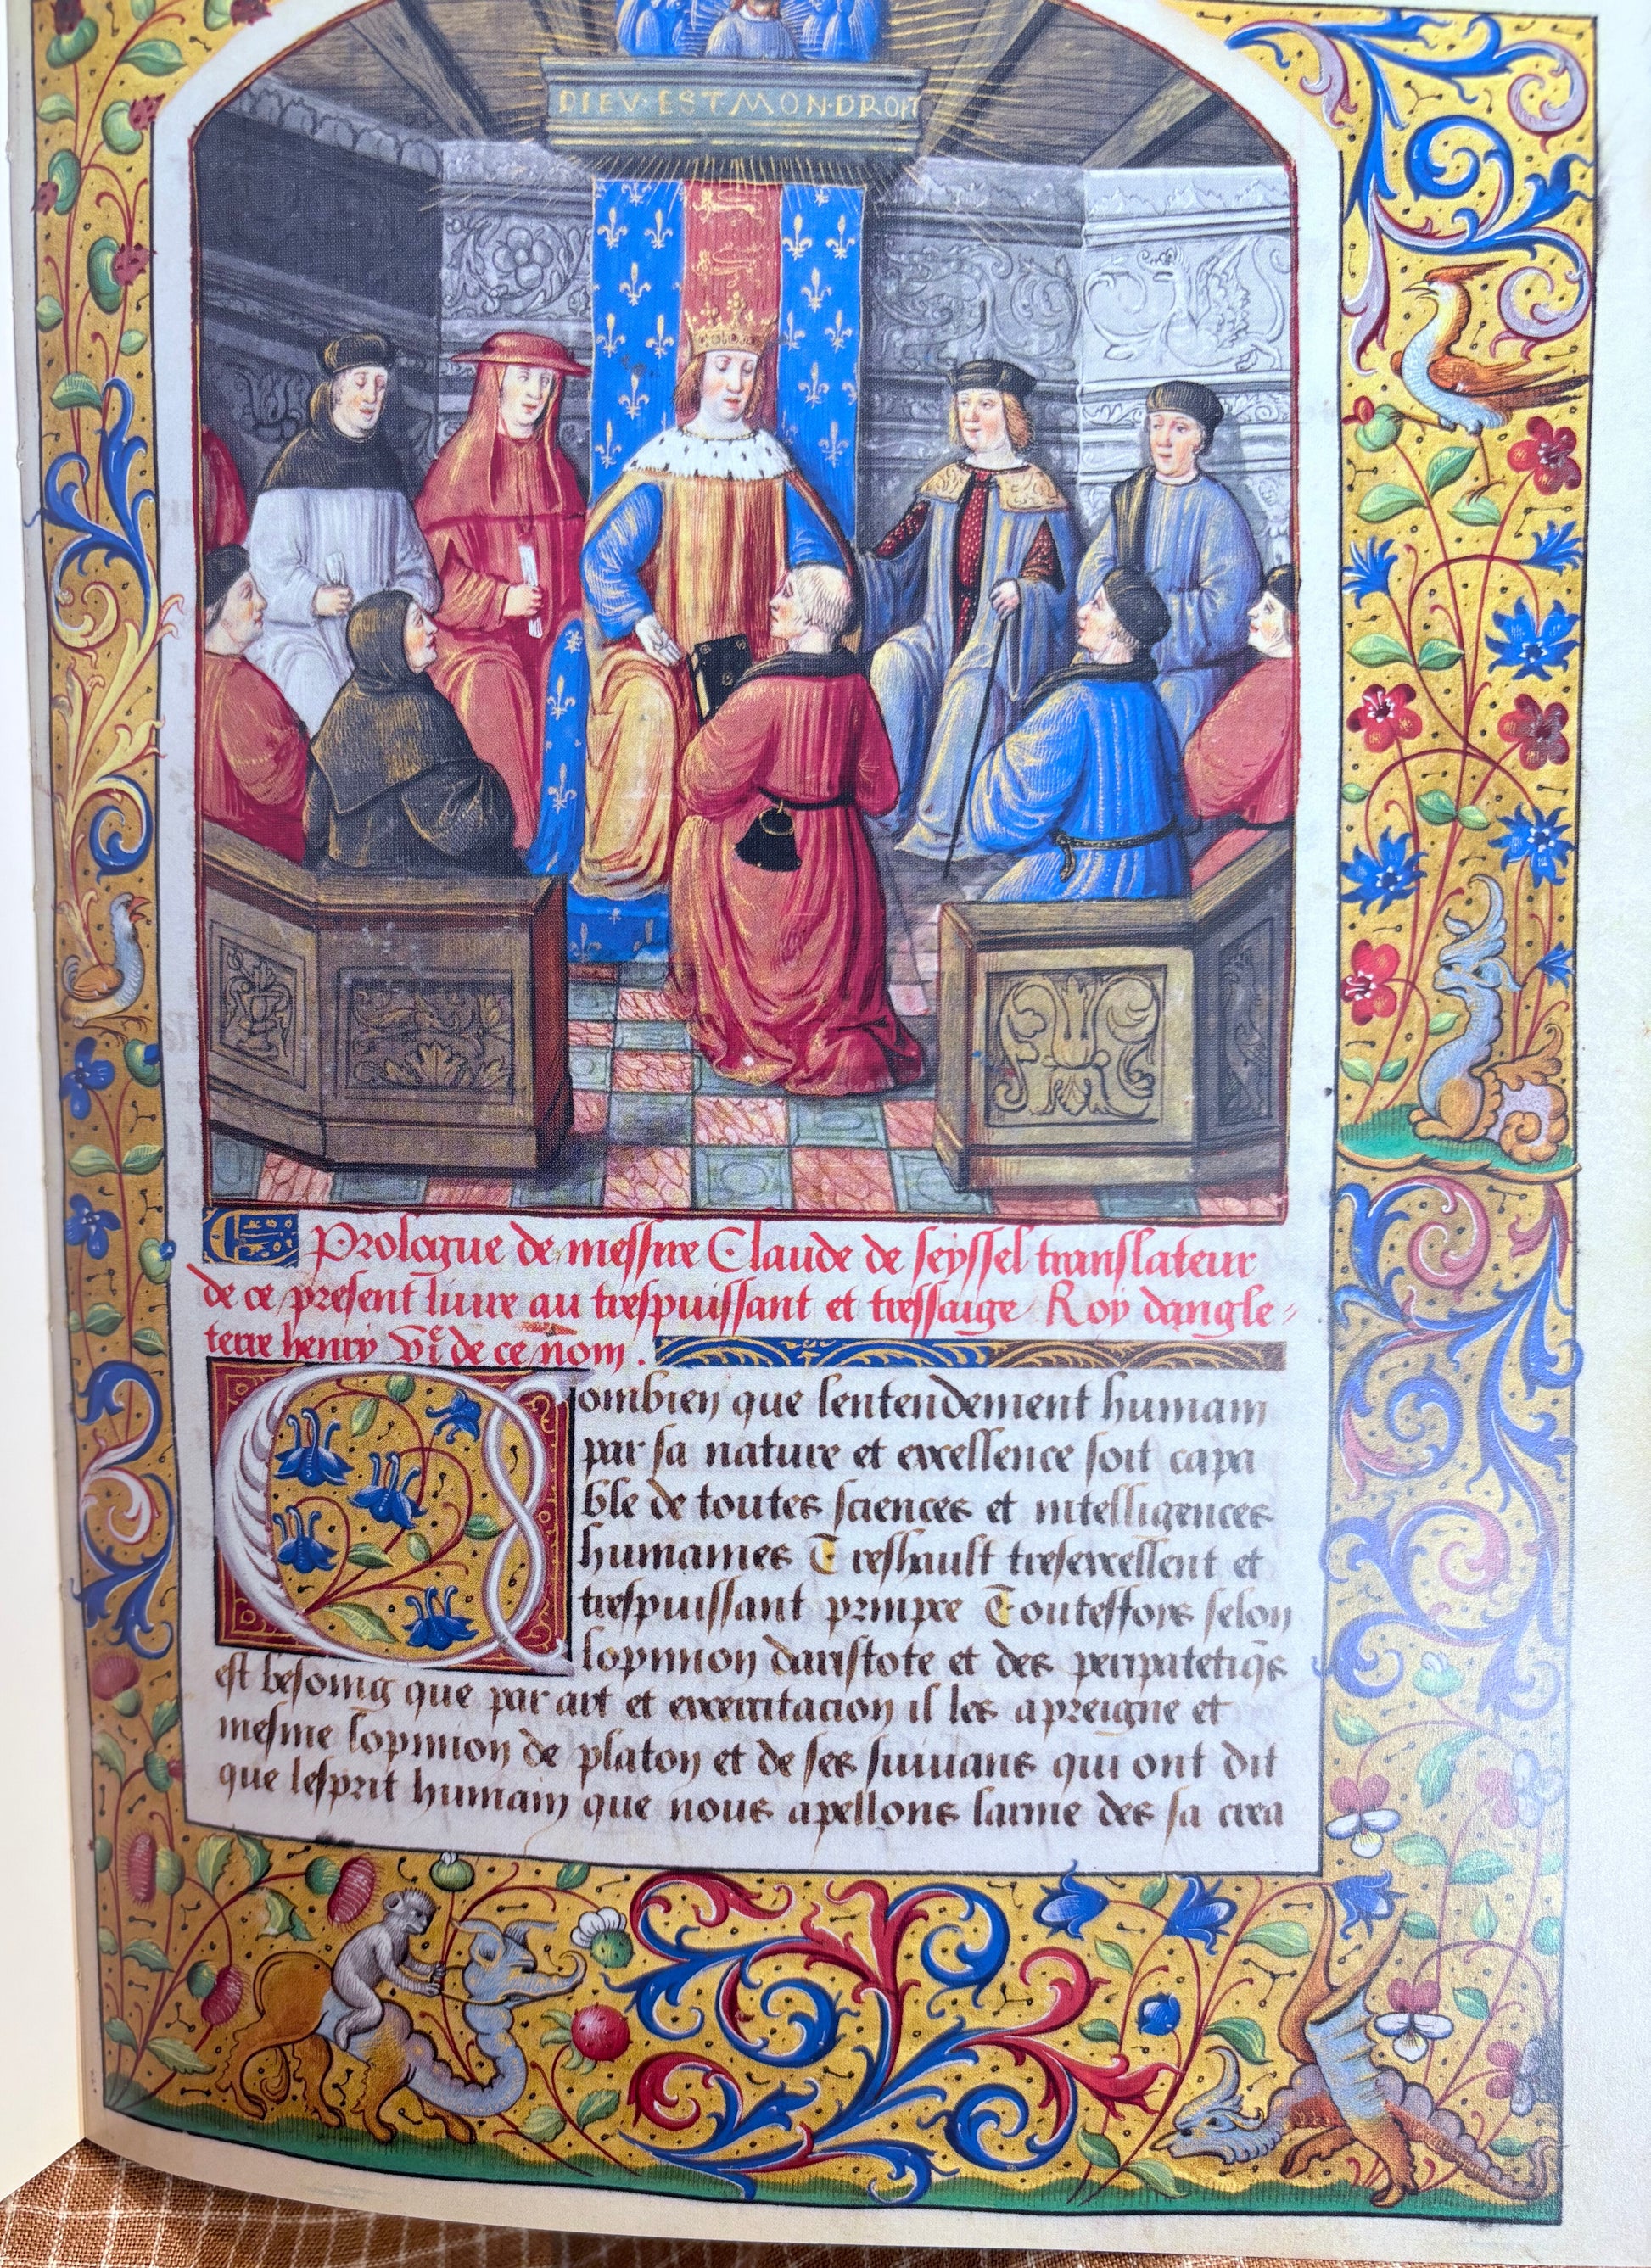 DIEV·EST·MON·DROIT
Prologue de messire Claude de seyssel translateur
de ce present liure au trespuissant et tressaige Roy dangle-
terre henry vije de ce nom.
Combien que lentendement humain
par sa nature et excellence soit capa
ble de toutes sciences et intelligences
humaines Treshault tresexcellent et
trespuissant prince Toutesfois selon
lopinion daristote et des peripatetiqs
est besoing que par art et exercitacion il les apreigne et
mesme lopinion de platon et de ses suiuans qui ont dit
que lesprit humain que nous apellons larme des sa crea